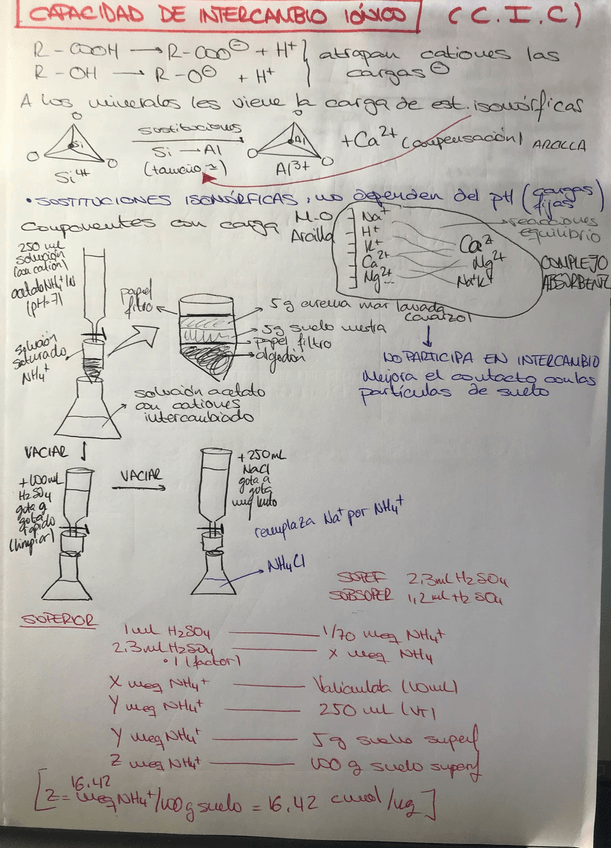 CAPACIDAD DE INTERCAMBIO IÓNICO (C.I.C)
R-COOH → R-COO⊖ + H⁺
R-OH → R-O⊖ + H⁺
atrapan cationes las
cargas ⊖
A los minerales les viene la carga de est. isomórficas
O
O
Si
O
O
Si⁴⁺
sustituciones
Si → Al
(tamaño ≃)
O
O
Al
O
O
Al³⁺
+ Ca²⁺ (compensación) ARCILLA
• SUSTITUCIONES ISOMÓRFICAS, no dependen del pH (cargas
fijas
Componentes con carga
M.O
Arcilla
Na⁺
H⁺
K⁺
Ca²⁺
Mg²⁺
Ca²⁺
Mg²⁺
Na⁺K⁺
reacciones
equilibrio
COMPLEJO
ABSORBENTE
250 ml
solución
acetato NH₄⁺ 1N
(pH=7)
solución
saturado
NH₄⁺
papel
filtro
5g arena mar lavada
(cuarzo)
5g suelo muestra
papel filtro
algodón
NO PARTICIPA EN INTERCAMBIO
Mejora el contacto con las
partículas de suelo
solución acetato
con cationes
intercambiado
VACIAR
+100 mL
H₂SO₄
gota a
gota
rápido
(limpiar)
VACIAR
+250 mL
NaCl
gota a
gota
muy lento
remplaza Na⁺ por NH₄⁺
NH₄Cl
SUPEF 2,3 ml H₂SO₄
SUBSUPER 1,2 ml H₂SO₄
SUPERIOR
1 ml H₂SO₄ — 1/70 meq NH₄⁺
2,3 ml H₂SO₄ — x meq NH₄
• 1 (factor)
X meq NH₄⁺ — Valiculata (10 ml)
Y meq NH₄⁺ — 250 ml (VT)
Y meq NH₄⁺ — 5g suelo superf
Z meq NH₄⁺ — 100 g suelo superf
[Z = 16.42 meq NH₄⁺/100 g suelo = 16,42 cmol/kg]